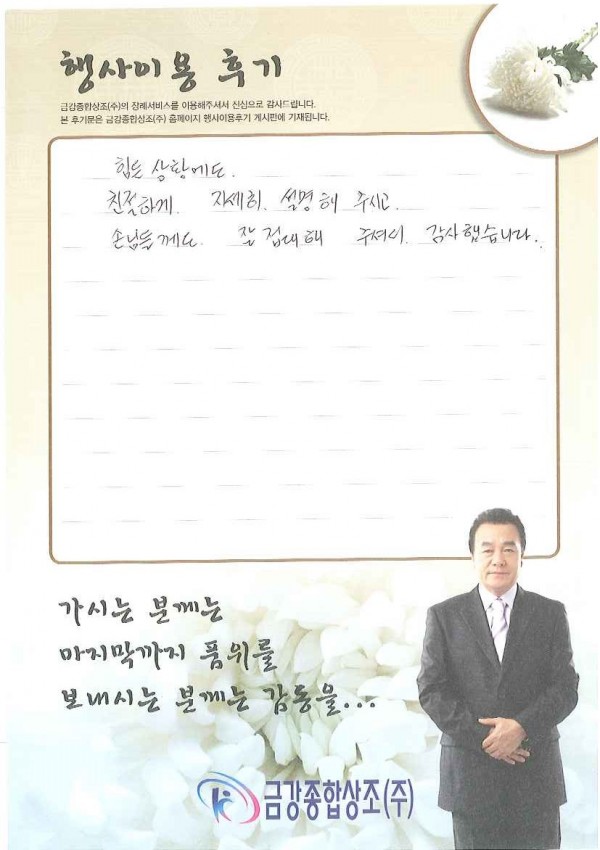 행사이용 후기
금강종합상조(주)의 장례서비스를 이용해주셔서 진심으로 감사드립니다.
본 후기문은 금강종합상조(주) 홈페이지 행사이용후기 게시판에 기재됩니다.
힘든 상황에도.
친절하게. 자세히. 설명해 주시고.
손님들께도. 잘 접대해 주셔서. 감사했습니다.
가시는 분께는
마지막까지 품위를
보내시는 분께는 감동을...
금강종합상조(주)